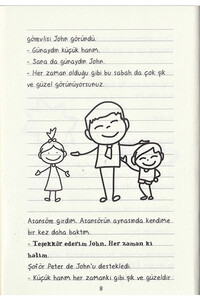 görevlisi John göründü.
- Günaydın küçük hanım.
- Sana da günaydın John.
- Her zaman olduğu gibi bu sabah da çok şık
ve güzel görünüyorsunuz.
Asansöre girdim. Asansörün aynasında kendime
bir kez daha baktım.
- Teşekkür ederim John. Her zaman ki
halim.
Şoför Peter de John'u destekledi.
- Küçük hanım her zamanki gibi şık ve güzeldir
8